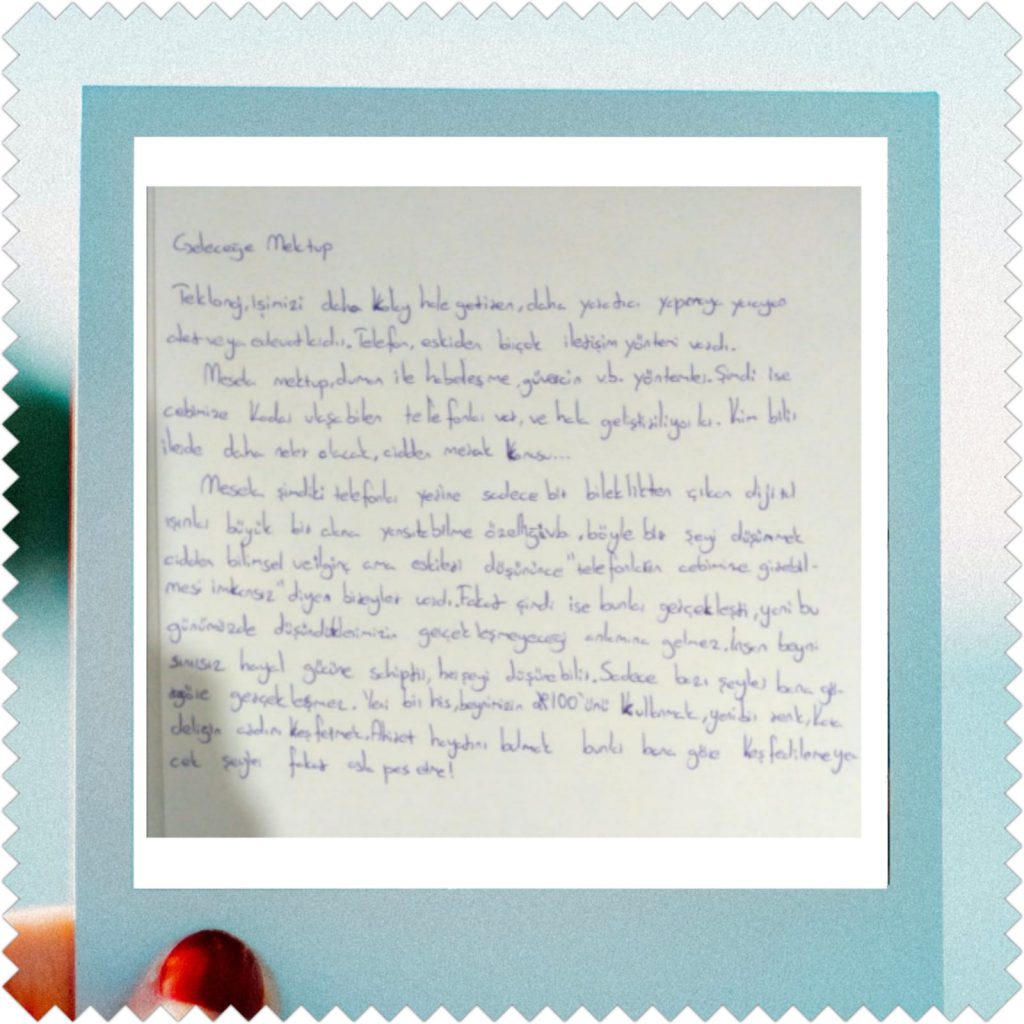 Geleceğe Mektup
Teklonoji, işimizi daha kolay hale getiren, daha yaratıcı yapmaya yarayan
alet veya edevatlardır. Telefon, eskiden birçok iletişim yöntemi vardı.
Mesela mektup, duman ile haberleşme, güvercin v.b. yöntemler. Şimdi ise
cebimize kadar ulaşabilen telefonlar var, ve hala geliştiriliyorlar. Kim bilir
ilerde daha neler olacak, cidden merak konusu...
Mesela şimdiki telefonlar yerine sadece bir bileklikten çıkan dijital
ışınları büyük bir alana yansıtabilme özelliği vb. böyle bir şeyi düşünmek
cidden bilimsel ve ilginç ama eskileri düşününce "telefonların cebimize girebil-
mesi imkansız" diyen bireyler vardı. Fakat şimdi ise bunlar gerçekleşti, yani bu
günümüzde düşündüklerimizin gerçekleşmeyeceği anlamına gelmez. İnsan beyni
sınırsız hayal gücüne sahiptir, herşeyi düşünebilir. Sadece bazı şeyler bana gö-
re gerçekleşmez. Yeni bir his, beynimizin %100'ünü kullanmak, yeni bir renk, Kara
deliğin ardını keşfetmek, Ahiret hayatını bulmak bunlar bana göre keşfedilemeye
cek şeyler fakat asla pes etme!